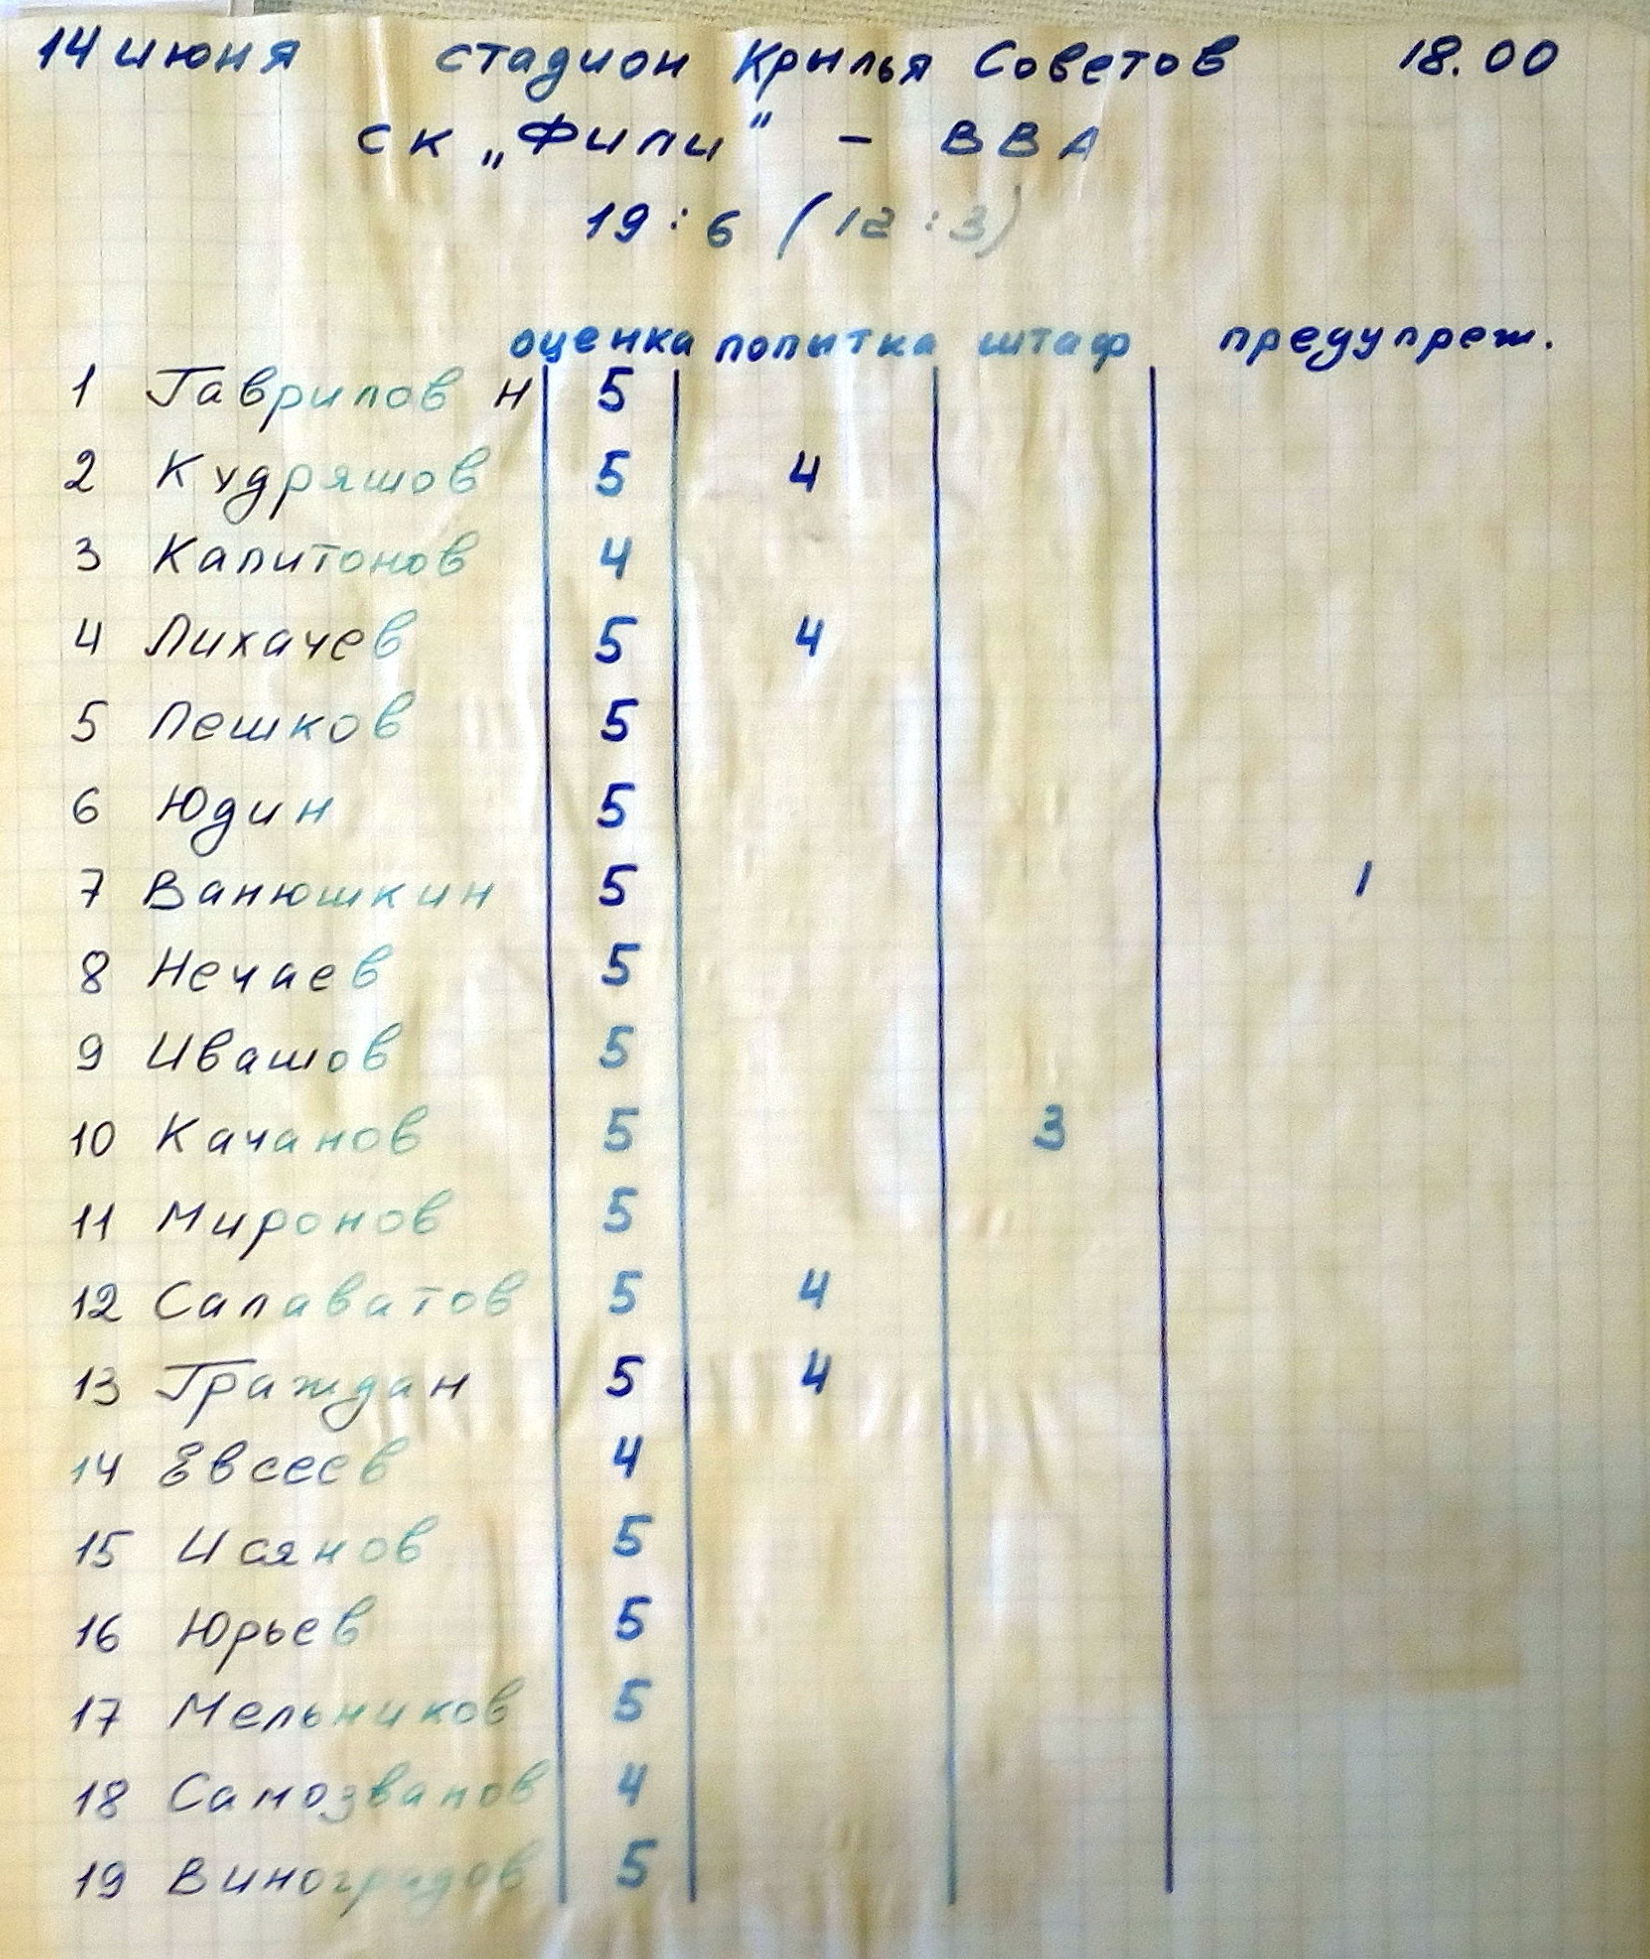 14 июня стадион Крылья Советов 18.00
ск „Фили" – ВВА
19:6 (12:3)
оценка попытка штаф предупреж.
1 Гаврилов Н 5
2 Кудряшов 5 4
3 Капитонов 4
4 Лихачев 5 4
5 Пешков 5
6 Юдин 5
7 Ванюшкин 5 1
8 Нечаев 5
9 Ивашов 5
10 Качанов 5 3
11 Миронов 5
12 Салаватов 5 4
13 Граждан 5 4
14 Евсеев 4
15 Исянов 5
16 Юрьев 5
17 Мельников 5
18 Самозванов 4
19 Виноградов 5